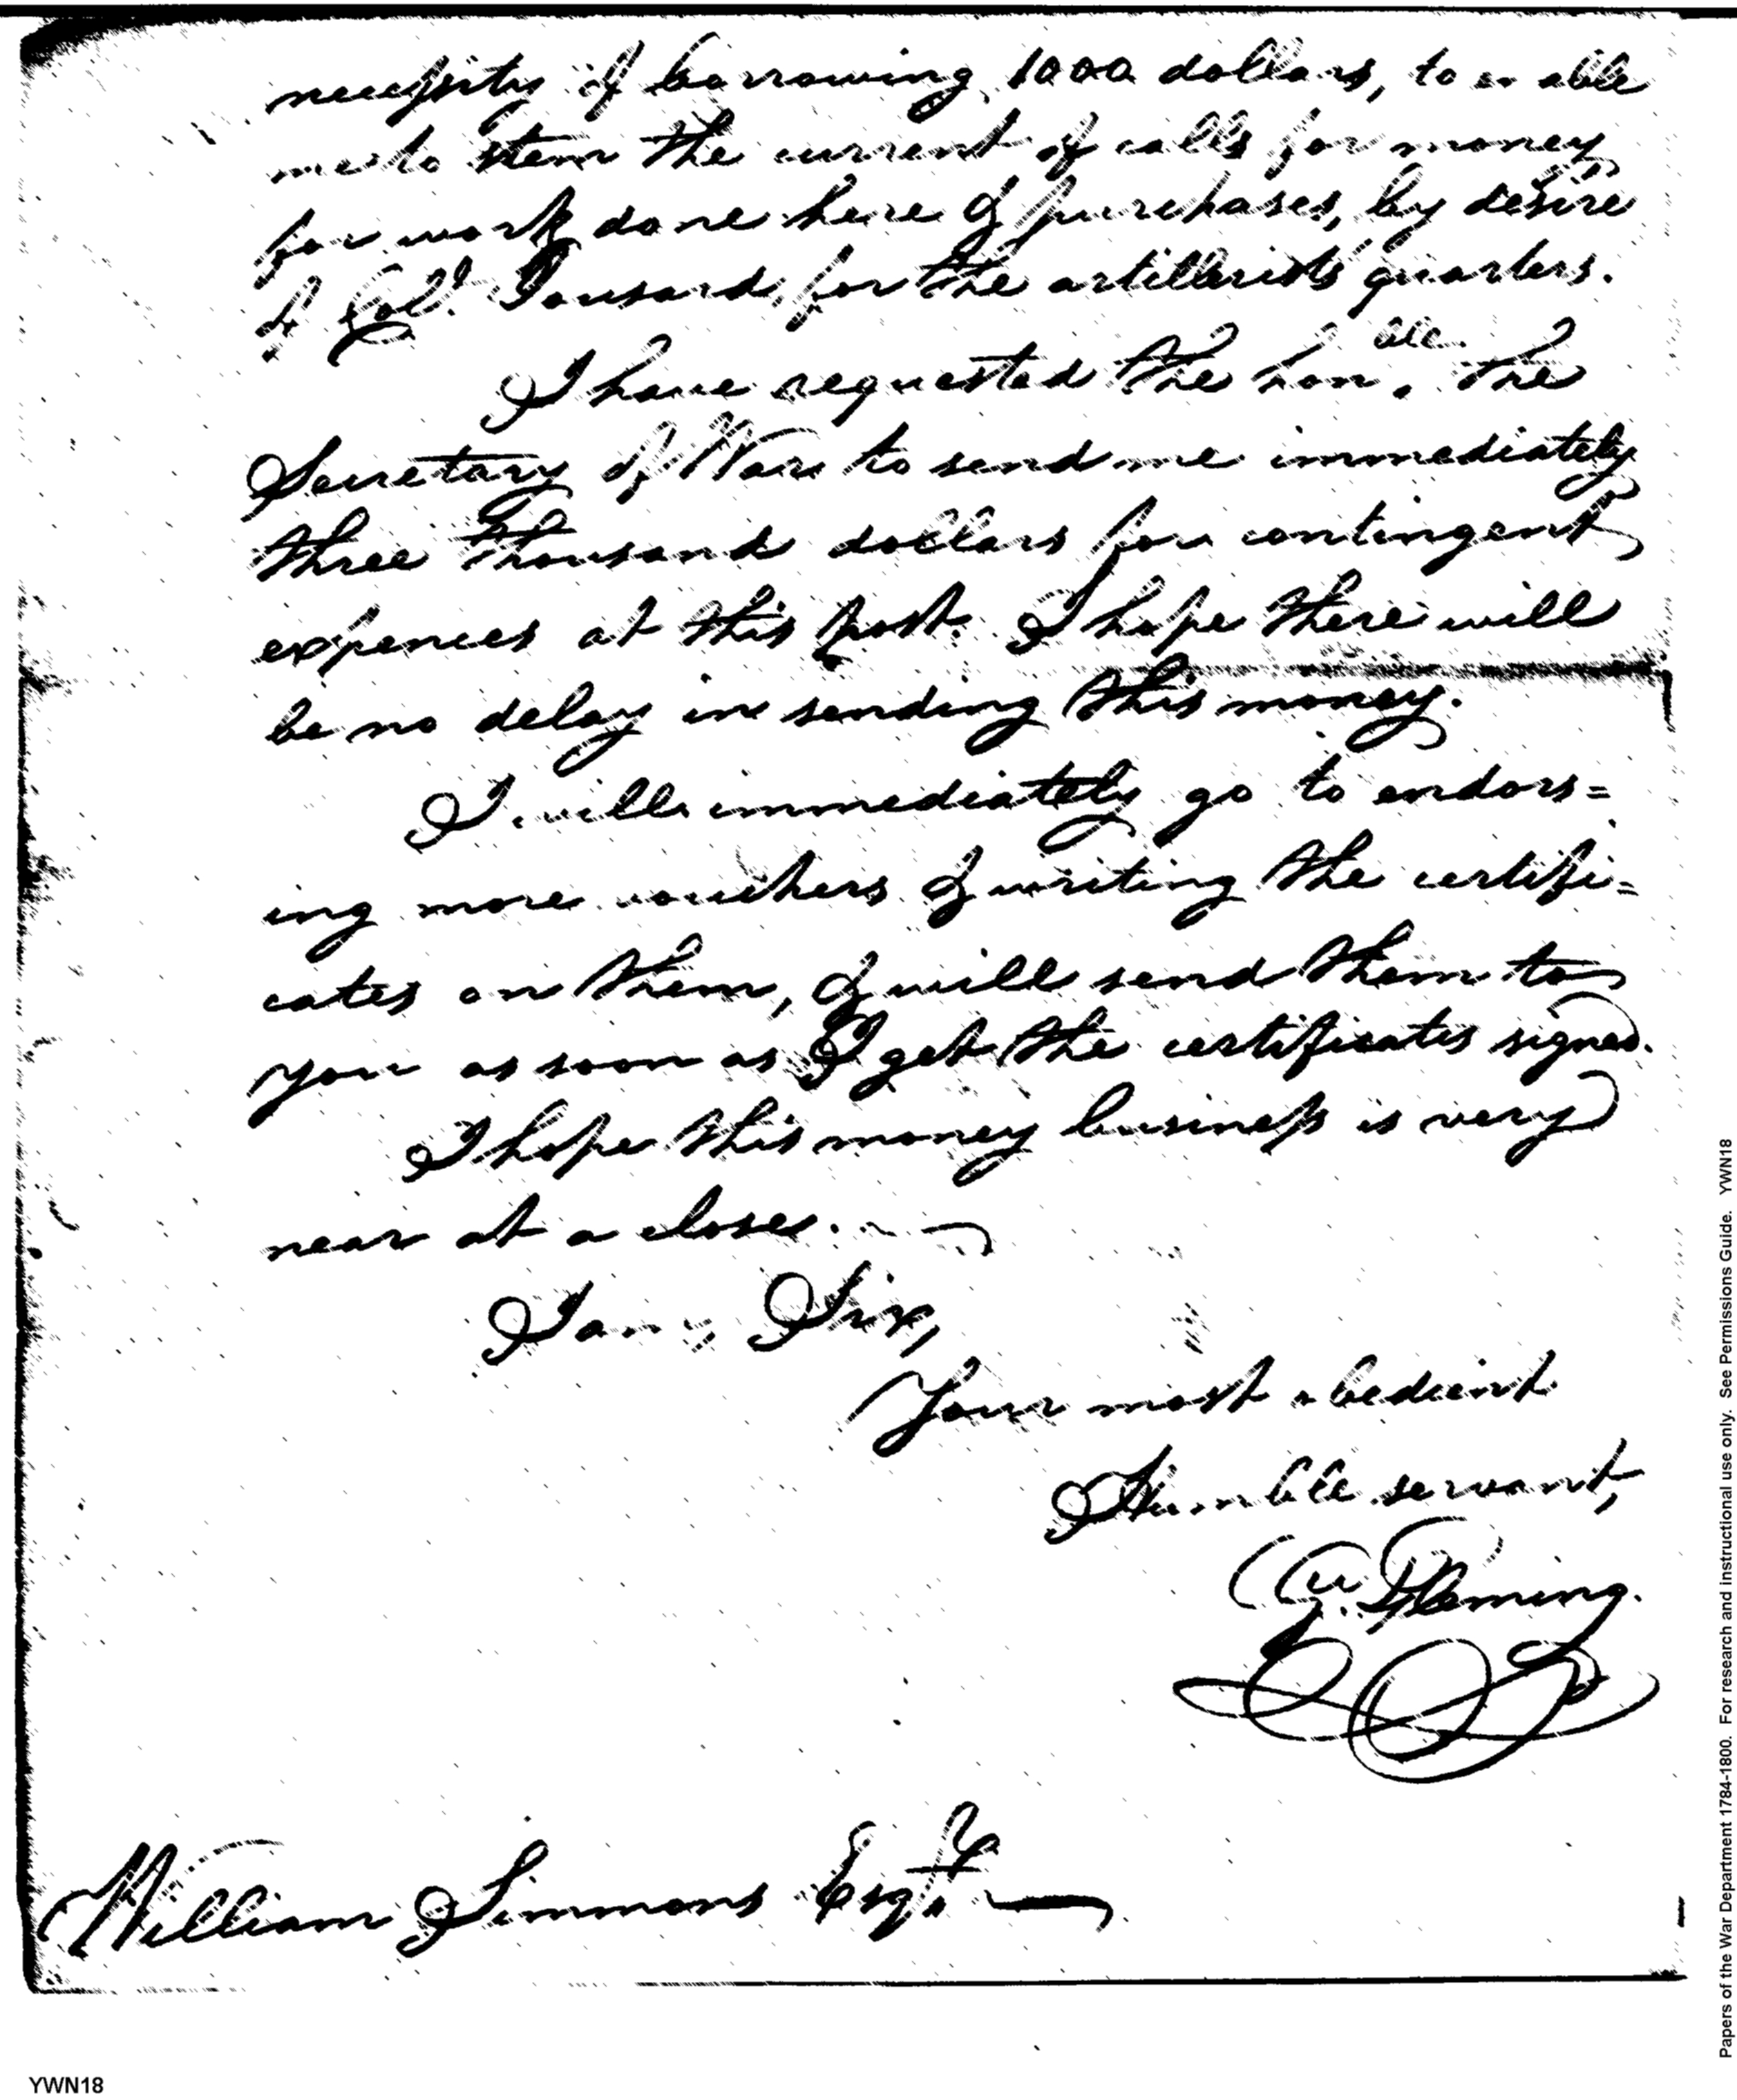 necessity of borrowing 1000 dollars, to enable
me to stem the current of calls for money
for work done here & purchases, by desire
of Col. Tousard, for the artillerists' quarters.
I have requested the hon.ble the
Secretary of War to send me immediately
three thousand dollars for contingent
expences at this post. I hope there will
be no delay in sending this money.
I will immediately go to endors=
ing more vouchers & writing the certifi=
cates on them, & will send them to
you as soon as I get the certificates signed.
I hope this money business is very
near at a close.
I am, Sir,
Your most obedient
Humble servant,
Fleming.
William Simmons Esqr.
YWN18
Papers of the War Department 1784-1800. For research and instructional use only. See Permissions Guide. YWN18